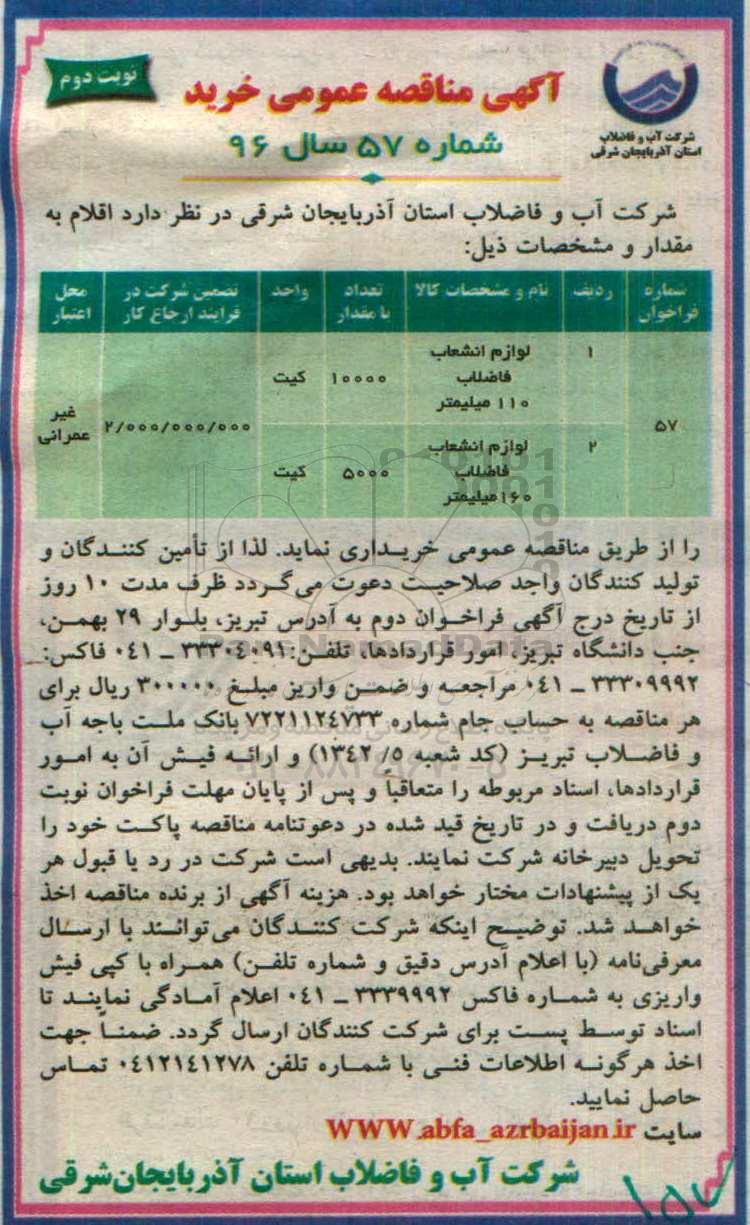 شرکت آب و فاضلاب
استان آذربایجان شرقی
نوبت دوم
آگهی مناقصه عمومی خرید
شماره ۵۷ سال ۹۶
شرکت آب و فاضلاب استان آذربایجان شرقی در نظر دارد اقلام به
مقدار و مشخصات ذیل:
شماره فراخوان | ردیف | نام و مشخصات کالا | تعداد یا مقدار | واحد | تضمین شرکت در فرایند ارجاع کار | محل اعتبار
۵۷ | ۱ | لوازم انشعاب فاضلاب ۱۱۰ میلیمتر | ۱۰۰۰۰ | کیت | ۲/۰۰۰/۰۰۰/۰۰۰ | غیر عمرانی
۲ | لوازم انشعاب فاضلاب ۱۶۰ میلیمتر | ۵۰۰۰ | کیت
را از طریق مناقصه عمومی خریداری نماید. لذا از تأمین کنندگان و
تولید کنندگان واجد صلاحیت دعوت می‌گردد ظرف مدت ۱۰ روز
از تاریخ درج آگهی فراخوان دوم به آدرس تبریز، بلوار ۲۹ بهمن،
جنب دانشگاه تبریز، امور قراردادها، تلفن: ۳۳۳۰٤۰۹۱ ـ ۰٤۱ فاکس:
۳۳۳۰۹۹۹۲ ـ ۰٤۱ مراجعه و ضمن واریز مبلغ ۳۰۰۰۰۰ ریال برای
هر مناقصه به حساب جام شماره ۷۲۲۱۱۲٤۷۳۳ بانک ملت باجه آب
و فاضلاب تبریز (کد شعبه ۵/ ۱۳٤۲) و ارائه فیش آن به امور
قراردادها، اسناد مربوطه را متعاقباً و پس از پایان مهلت فراخوان نوبت
دوم دریافت و در تاریخ قید شده در دعوتنامه مناقصه پاکت خود را
تحویل دبیرخانه شرکت نمایند. بدیهی است شرکت در رد یا قبول هر
یک از پیشنهادات مختار خواهد بود. هزینه آگهی از برنده مناقصه اخذ
خواهد شد. توضیح اینکه شرکت کنندگان می‌توانند با ارسال
معرفی‌نامه (با اعلام آدرس دقیق و شماره تلفن) همراه با کپی فیش
واریزی به شماره فاکس ۳۳۳۹۹۹۲ ـ ۰٤۱ اعلام آمادگی نمایند تا
اسناد توسط پست برای شرکت کنندگان ارسال گردد. ضمناً جهت
اخذ هرگونه اطلاعات فنی با شماره تلفن ۰٤۱۲۱٤۱۲۷۸ تماس
حاصل نمایید.
سایت WWW.abfa_azrbaijan.ir
شرکت آب و فاضلاب استان آذربایجان‌شرقی